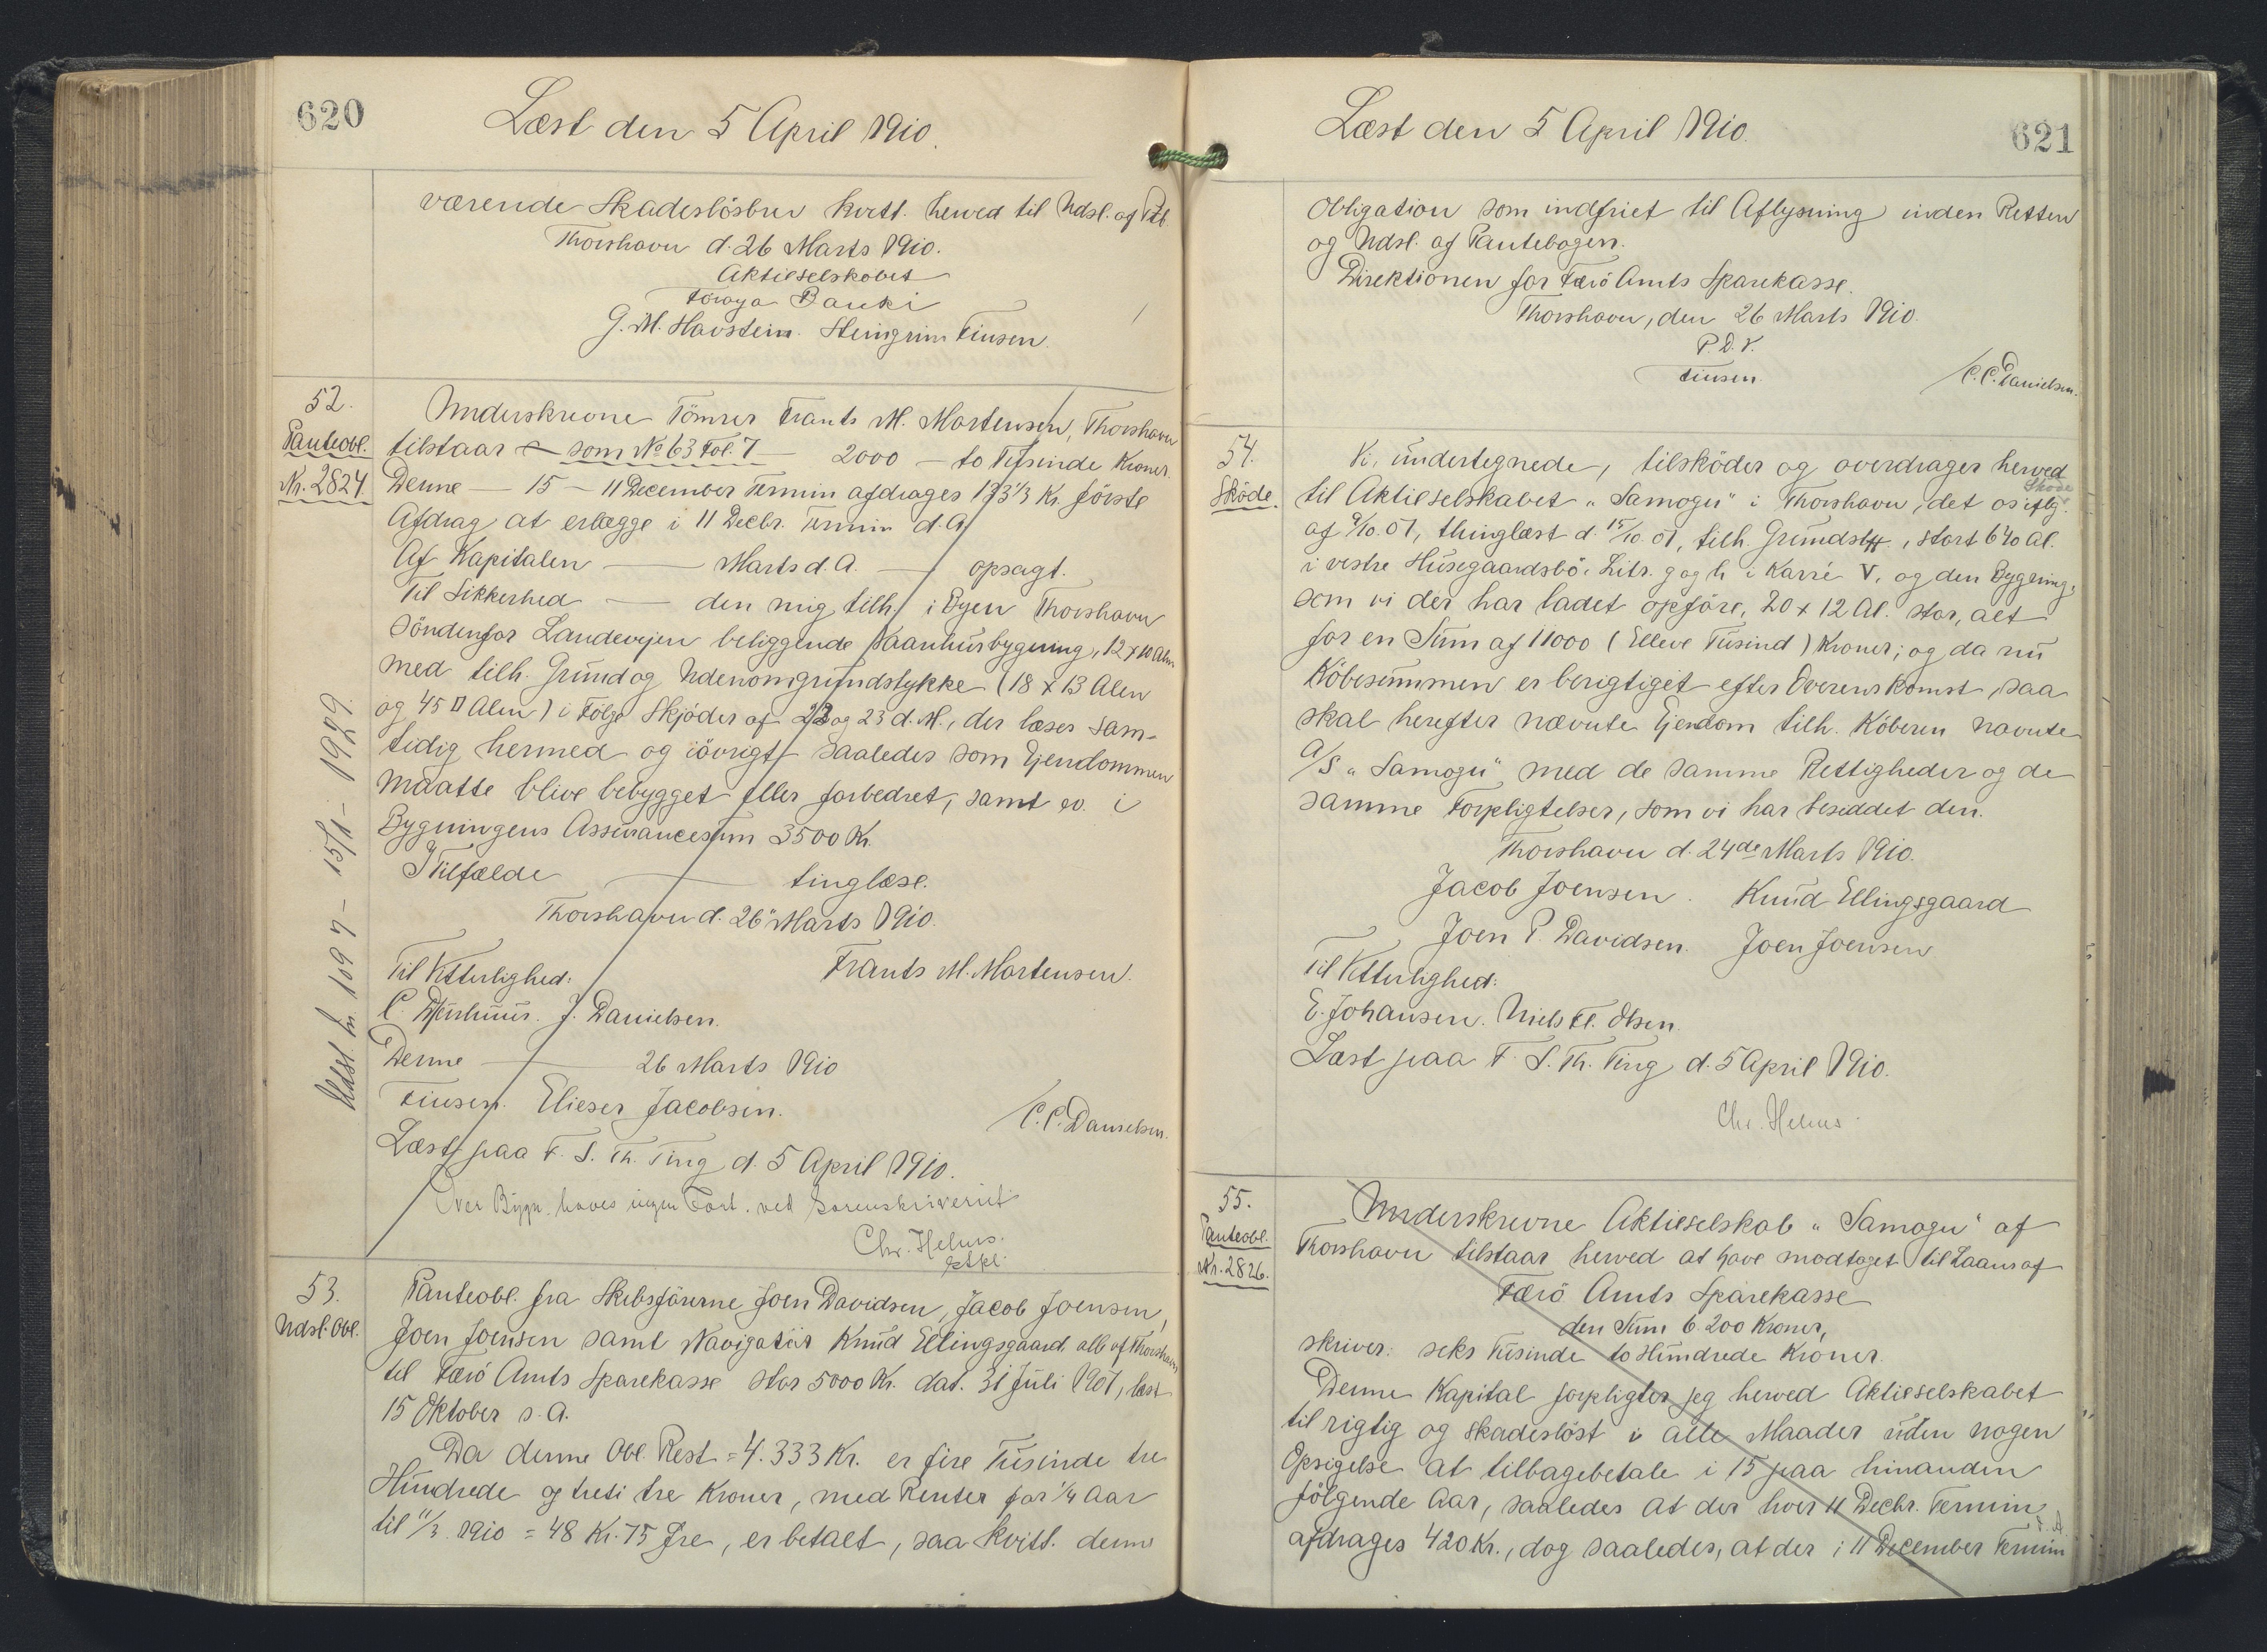 620
Læst den 5 April 1910.
værende Skadesløsbrev kvitt. herved til Udsl. af Ptb.
Thorshavn d. 26 Marts 1910.
Aktieselskabet
Föroya Banki
G. M. Havstein. Steingrim Finsen.
52.
Panteobl.
Nr. 2824.
Underskrevne Tömrer Frants M. Mortensen, Thorshavn
tilstaar — som No 63 Fol. 7 — 2000 — to Tusinde Kroner.
Denne — 15 — 11 December Termin afdrages 133 1/3 Kr. förste
Afdrag at erlægge i 11 Decbr. Termin d. A.
Af Kapitalen — Marts d. A. — opsagt.
Til Sikkerhed — den mig tilh. i Byen Thorshavn
söndenfor Landevejen beliggende Vaanhusbygning, 12 x 10 Alen
med tilh. Grund og Udenomgrundstykke (18 x 13 Alen
og 45 □ Alen) i Følge Skjöder af 22 og 23 d. M., der læses sam-
tidig hermed og iövrigt saaledes som Ejendommen
maatte blive bebygget eller forbedret, samt ev. i
Bygningens Assurancesum 3500 Kr.
I Tilfælde — tinglæse.
Thorshavn d. 26" Marts 1910.
Til Vitterlighed: Frants M. Mortensen.
C. Djurhuus. J. Danielsen.
Denne — 26 Marts 1910
Finsen. Elieser Jacobsen. /C. C. Danielsen.
Læst paa F. S. Th. Ting d. 5 April 1910.
Over Bygn. haves ingen Fort. ved Sorenskriveriet
Chr. Helms.
cstl.
Udsl. fr. 109 7 - 15/1 - 1929.
53.
Udsl. Obl.
Panteobl. fra Skibsförerne Joen Davidsen, Jacob Joensen,
Joen Joensen samt Navigatör Knud Ellingsgaard, alle af Thorshavn
til Færö Amts Sparekasse stor 5000 Kr. dat. 31 Juli 1907, læst
15 Oktober s. A.
Da denne Obl. Rest = 4.333 Kr. er fire Tusinde tre
Hundrede og treti tre Kroner, med Renter for 1/4 Aar
til 11/3 1910 = 48 Kr. 75 Øre, er betalt, saa kvitt. denne
Læst den 5 April 1910.
621
Obligation som indfriet til Aflysning inden Retten
og Udsl. af Pantebogen.
Direktionen for Færö Amts Sparekasse.
Thorshavn, den 26 Marts 1910.
P. D. V.
Finsen. /C. C. Danielsen.
54.
Sköde.
Vi, undertegnede, tilsköder og overdrager herved
til Aktieselskabet "Samogu" i Thorshavn, det os iflg. Sköde
af 9/10 07, thinglæst d. 15/10 07, tilh. Grundst., stort 640 Al.
i vestre Husegaardsbö. Litr. g og h i Karré V, og den Bygning,
som vi der har ladet opföre, 20 x 12 Al. stor, alt
for en Sum af 11000 (Elleve Tusind) Kroner; og da nu
Köbesummen er berigtiget efter Overenskomst, saa
skal herefter nævnte Ejendom tilh. Köberen nævnte
A/S "Samogu" med de samme Rettigheder og de
samme Forpligtelser, som vi har besiddet den.
Thorshavn d. 24de Marts 1910.
Jacob Joensen. Knud Ellingsgaard
Joen P. Davidsen. Joen Joensen
Til Vitterlighed:
E. Johansen. Niels Fl. Olsen.
Læst paa F. S. Th. Ting d. 5 April 1910.
Chr. Helms.
55.
Panteobl.
Nr. 2826.
Underskrevne Aktieselskab "Samogu" af
Thorshavn tilstaar herved at have modtaget til Laans af
Færö Amts Sparekasse
den Sum 6.200 Kroner,
skriver: seks Tusinde to Hundrede Kroner.
Denne Kapital forpligter jeg herved Aktieselskabet
til rigtig og skadeslöst i alle Maader uden nogen
Opsigelse at tilbagebetale i 15 paa hinanden
fölgende Aar, saaledes at der hver 11 Decbr. Termin
afdrages 420 Kr., dog saaledes, at der i 11 December Termin d. A.